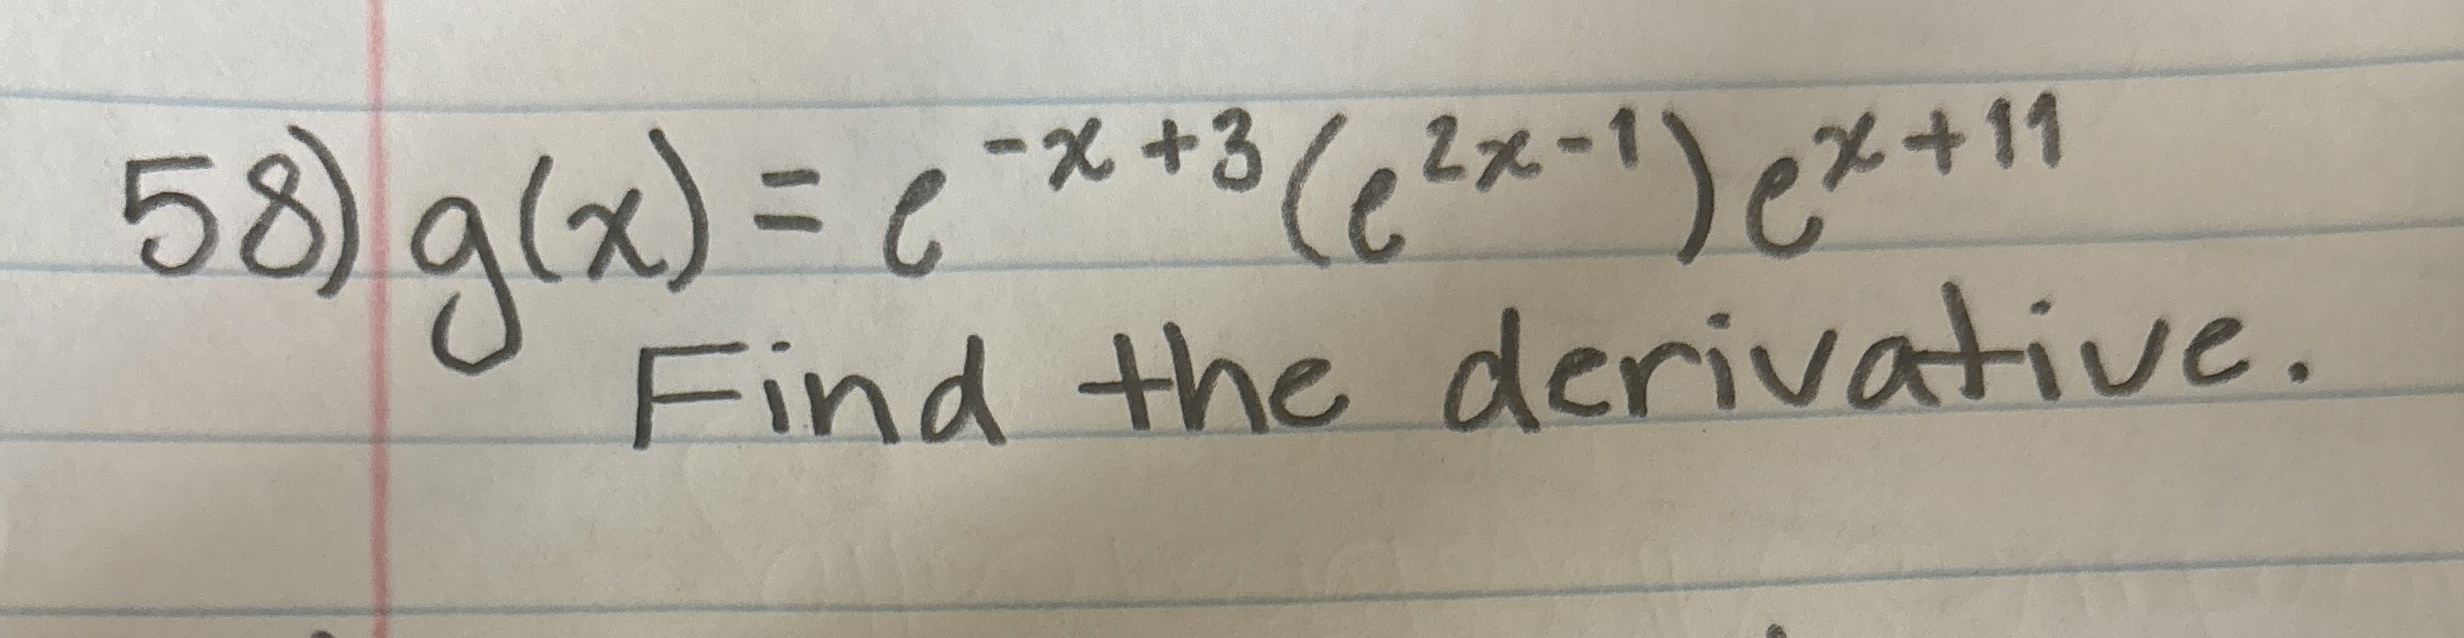 58) g(x) = e^{-x+3}(e^{2x-1})e^{x+11}
Find the derivative.